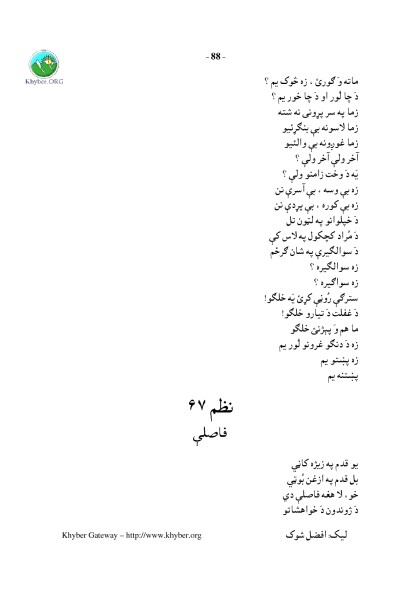 - 88 -
Khyber.ORG
ماته وَ ګورئ ، زه څوک يم ؟
دَ چا لُور او دَ چا خور يم ؟
زما په سر پړونی نه شته
زما لاسونه بې بنګړيو
زما غوږونه بې واليو
آخر ولې آخر ولې ؟
يَه دَ وخت زامنو ولې ؟
زه بې وسه ، بې آسرې نن
زه بې کوره ، بې پردې نن
دَ خپلوانو په لټون تل
دَ مُراد کچکول په لاس کې
دَ سوالګيرې په شان ګرځم
زه سوالګيره ؟
زه سواګيره ؟
سترګې رُوڼې کړئ يَه خلګو!
دَ غفلت دَ تيارو خلګو!
ما هم وَ پېژنئ خلګو
زه دَ دنګو غرونو لُور يم
زه پښتو يم
پښتنه يم
نظم ۶۷
فاصلې
يو قدم په زيږه کاڼي
بل قدم په ازغن بُوټي
خو ، لا هغه فاصلې دي
دَ ژوندون دَ خواهشاتو
ليک: افضل شوک
Khyber Gateway – http://www.khyber.org